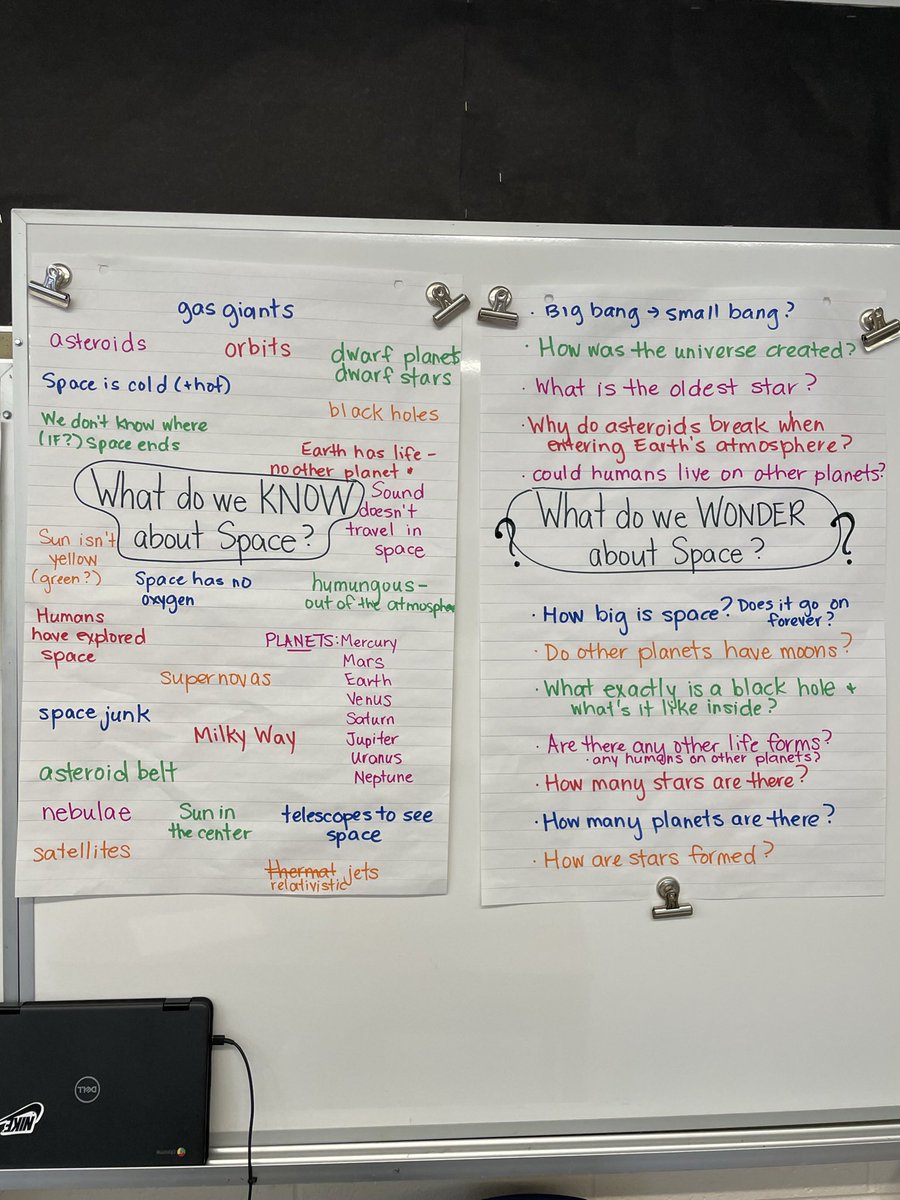 gas giants
asteroids
orbits
dwarf planets
dwarf stars
Space is cold (+hot)
black holes
We don't know where
(IF?) Space ends
Earth has life –
no other planet *
What do we KNOW
about Space?
Sound
doesn't
travel in
space
Sun isn't
yellow
(green?)
Space has no
oxygen
humungous –
out of the atmosphere
Humans
have explored
space
PLANETS: Mercury
Mars
Earth
Venus
Saturn
Jupiter
Uranus
Neptune
supernovas
space junk
Milky Way
asteroid belt
nebulae
Sun in
the center
telescopes to see
space
satellites
thermal jets
relativistic
· Big bang → small bang?
· How was the universe created?
· What is the oldest star?
· Why do asteroids break when
entering Earth's atmosphere?
· could humans live on other planets?
? What do we WONDER ?
about Space?
· How big is space? Does it go on
forever?
· Do other planets have moons?
· What exactly is a black hole +
what's it like inside?
· Are there any other life forms?
· any humans on other planets?
· How many stars are there?
· How many planets are there?
· How are stars formed?
DELL
NIKE